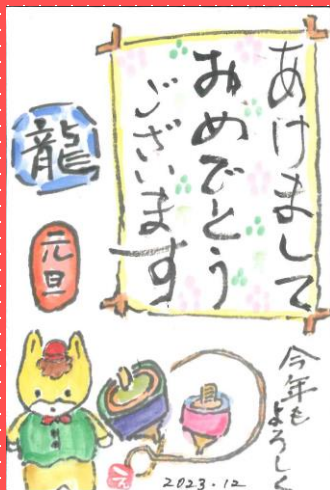 あけまして
おめでとう
ございます
龍
元旦
今年も
よろしく
2023.12